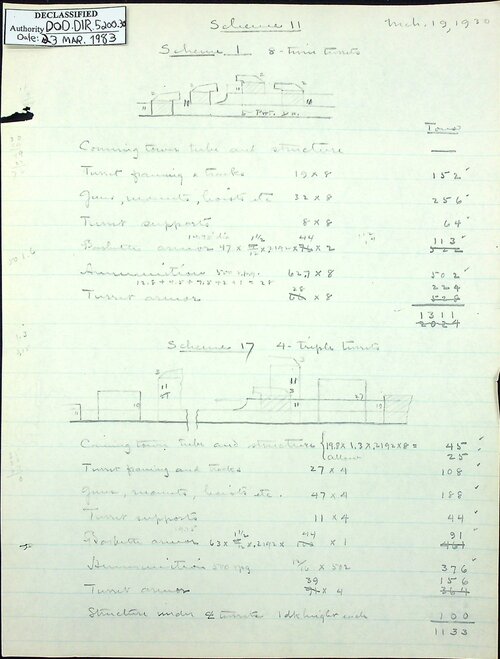 DECLASSIFIED
Authority DOD.DIR.5200.30
Date: 23 MAR. 1983
Scheme 11
Mch. 19, 1930
Scheme 1 8-twin turrets
Tons
Conning tower tube and structure —
Turret framing & tracks 19 x 8 152
Guns, mounts, hoists etc 32 x 8 256
Turret supports 8 x 8 64
Barbette armor 47 x 1½/12 x .2192 x 44 x 2 113
Ammunition 500 rpg. 627 x 8 502
224
Turret armor 28 x 8 528
1311
2024
Scheme 17 4-triple turrets
Conning tower tube and structure {19.8 x 1.3 x .2192 x 8 = 45
allow 25
Turret framing and tracks 27 x 4 108
Guns, mounts, hoists etc. 47 x 4 188
Turret supports 11 x 4 44
Barbette armor 63 x 1½/12 x .2192 x 44 x 1 91
Ammunition 500 rpg 12/16 x 502 376
39 156
Turret armor 91 x 4 364
Structure under 2 turrets 1 dk height each 100
1133